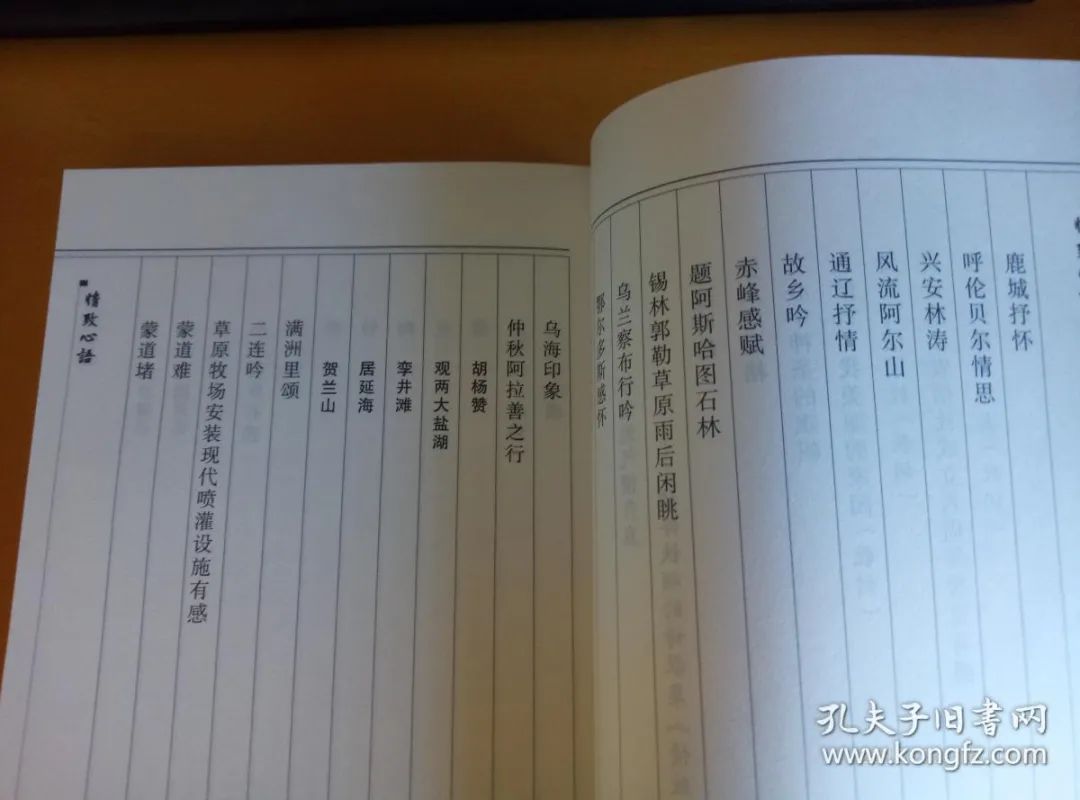 鹿城抒怀
呼伦贝尔情思
兴安林涛
风流阿尔山
通辽抒情
故乡吟
赤峰感赋
题阿斯哈图石林
锡林郭勒草原雨后闲眺
乌兰察布行吟
鄂尔多斯感怀
乌海印象
仲秋阿拉善之行
胡杨赞
观两大盐湖
孪井滩
居延海
贺兰山
满洲里颂
二连吟
草原牧场安装现代喷灌设施有感
蒙道难
蒙道堵
情致心语
孔夫子旧书网
www.kongfz.com